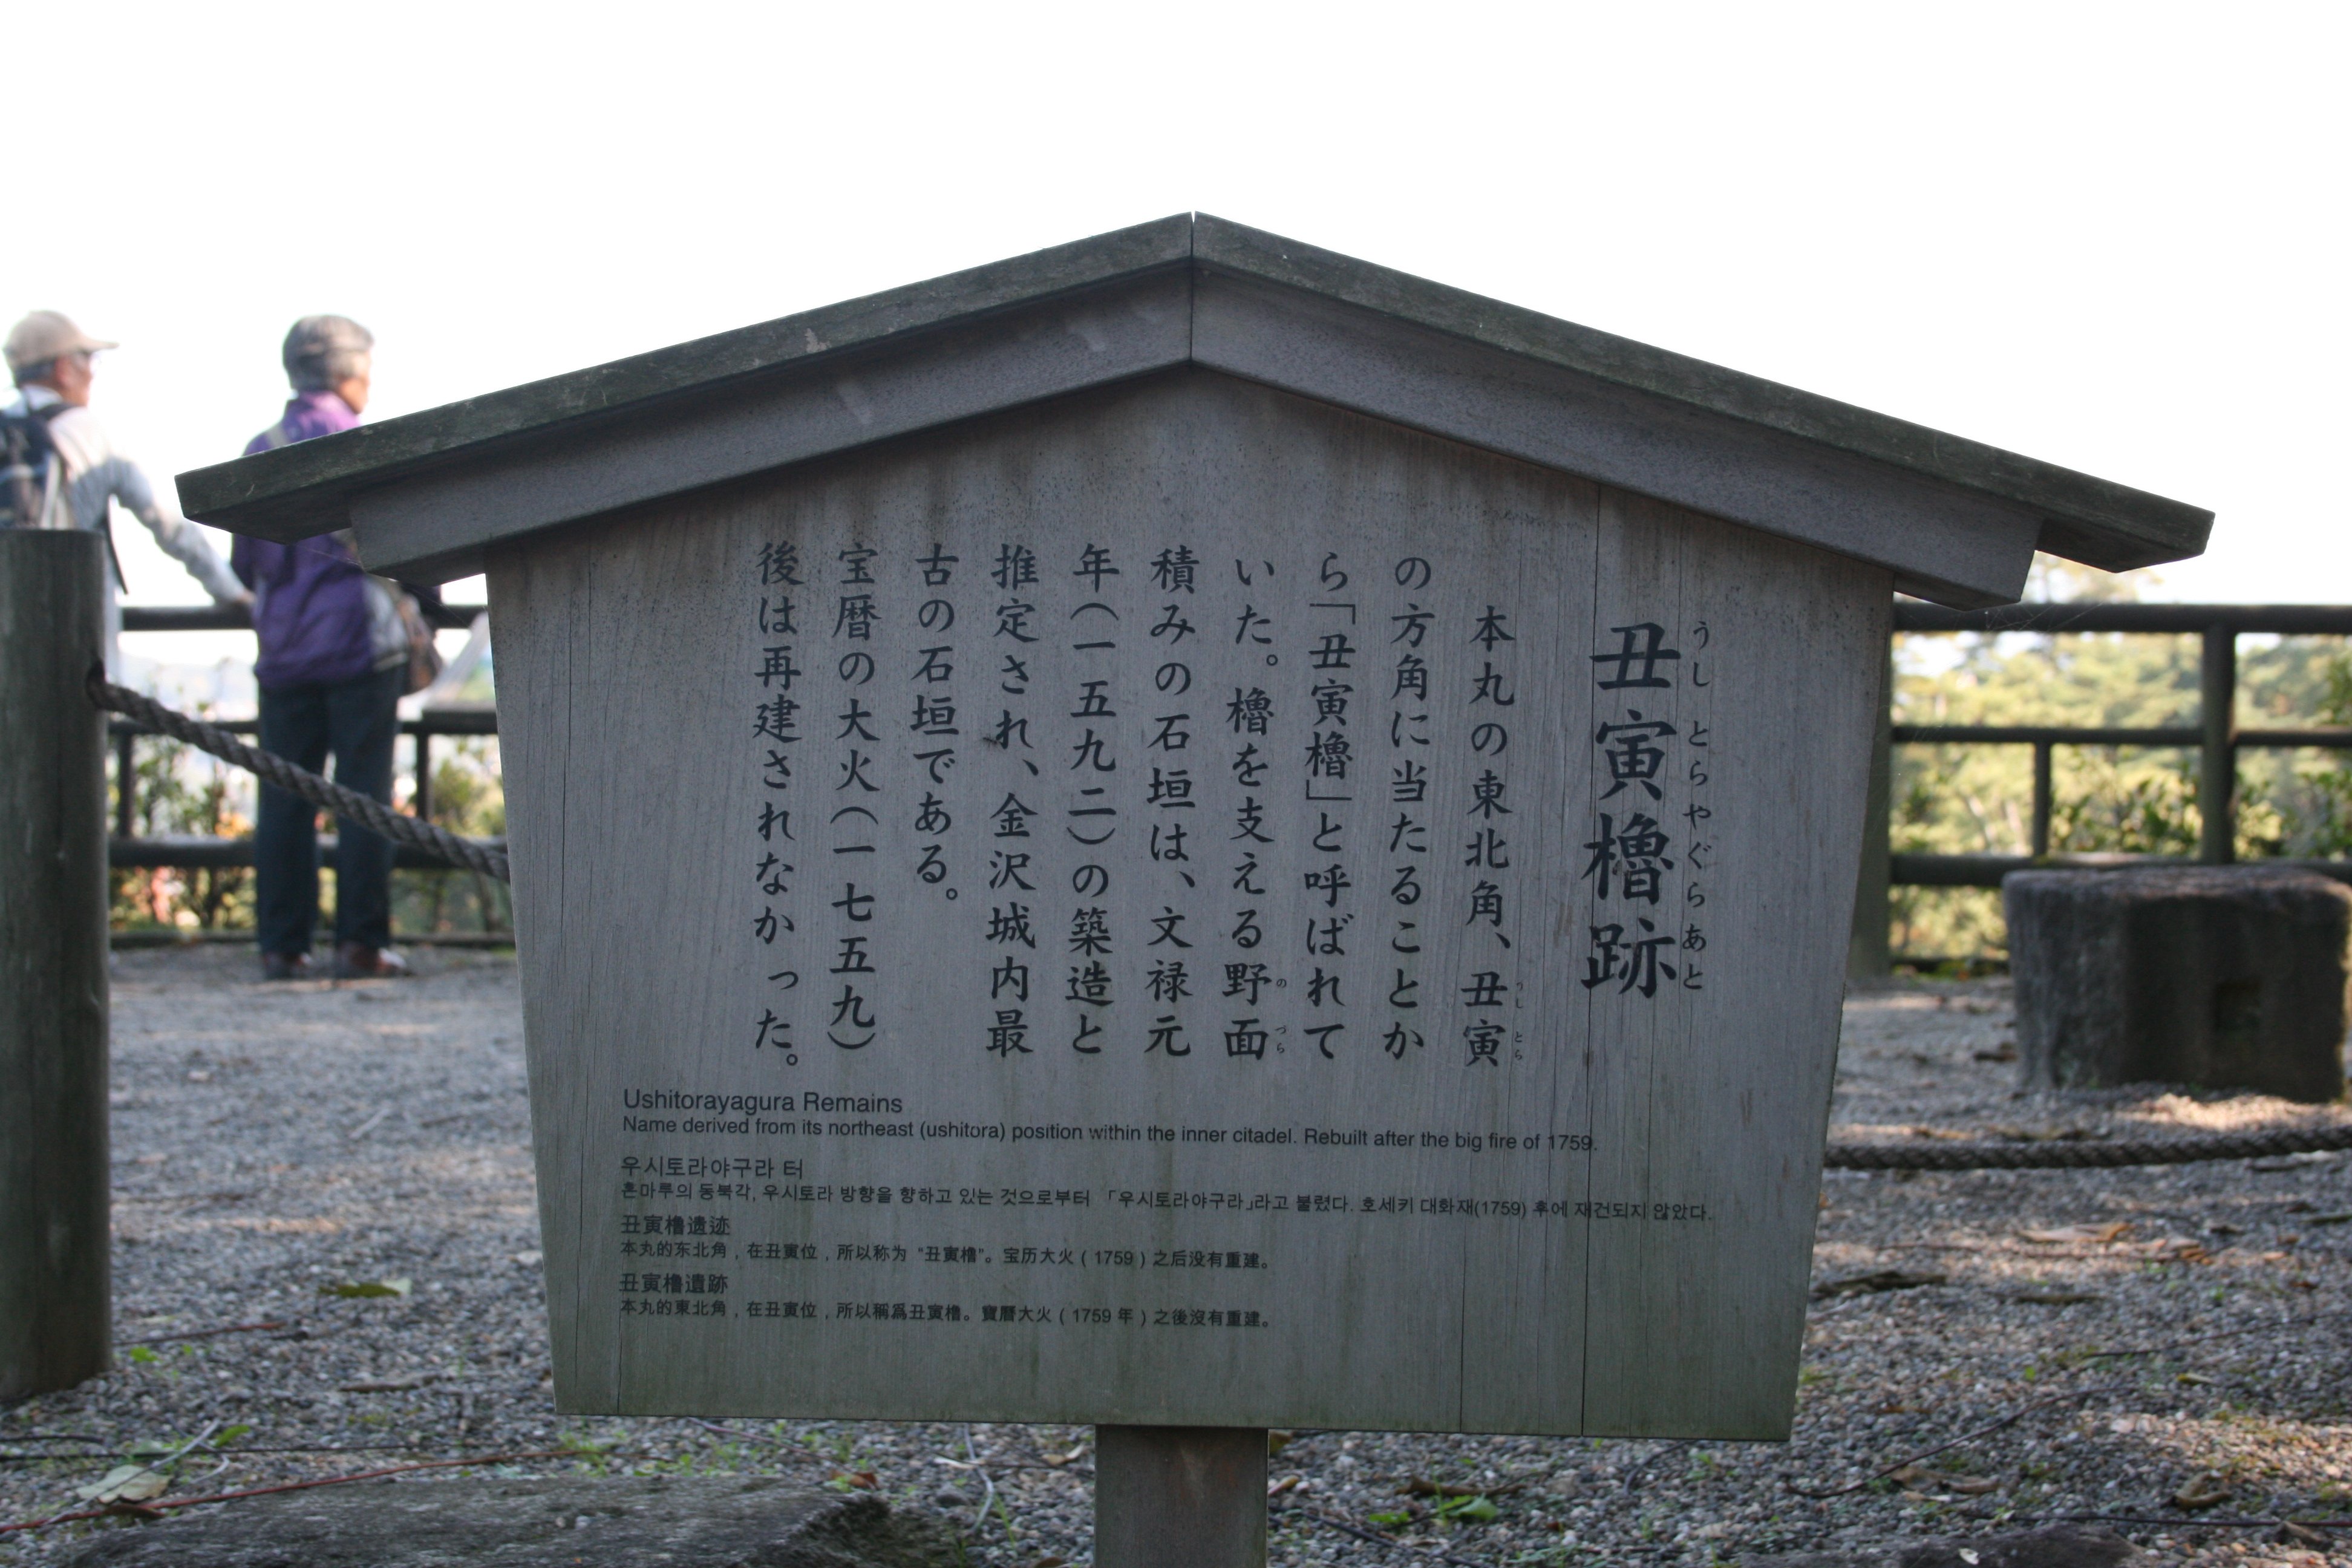 丑寅櫓跡
うし とら やぐら あと
本丸の東北角、丑寅
うし とら
の方角に当たることか
ら「丑寅櫓」と呼ばれて
いた。櫓を支える野面
の づら
積みの石垣は、文禄元
年(一五九二)の築造と
推定され、金沢城内最
古の石垣である。
宝暦の大火(一七五九)
後は再建されなかった。
Ushitorayagura Remains
Name derived from its northeast (ushitora) position within the inner citadel. Rebuilt after the big fire of 1759.
우시토라야구라 터
혼마루의 동북각, 우시토라 방향을 향하고 있는 것으로부터 「우시토라야구라」라고 불렸다. 호세키 대화재(1759) 후에 재건되지 않았다.
丑寅櫓遗迹
本丸的东北角，在丑寅位，所以称为“丑寅櫓”。宝历大火（1759）之后没有重建。
丑寅櫓遺跡
本丸的東北角，在丑寅位，所以稱爲丑寅櫓。寶曆大火（1759 年）之後沒有重建。